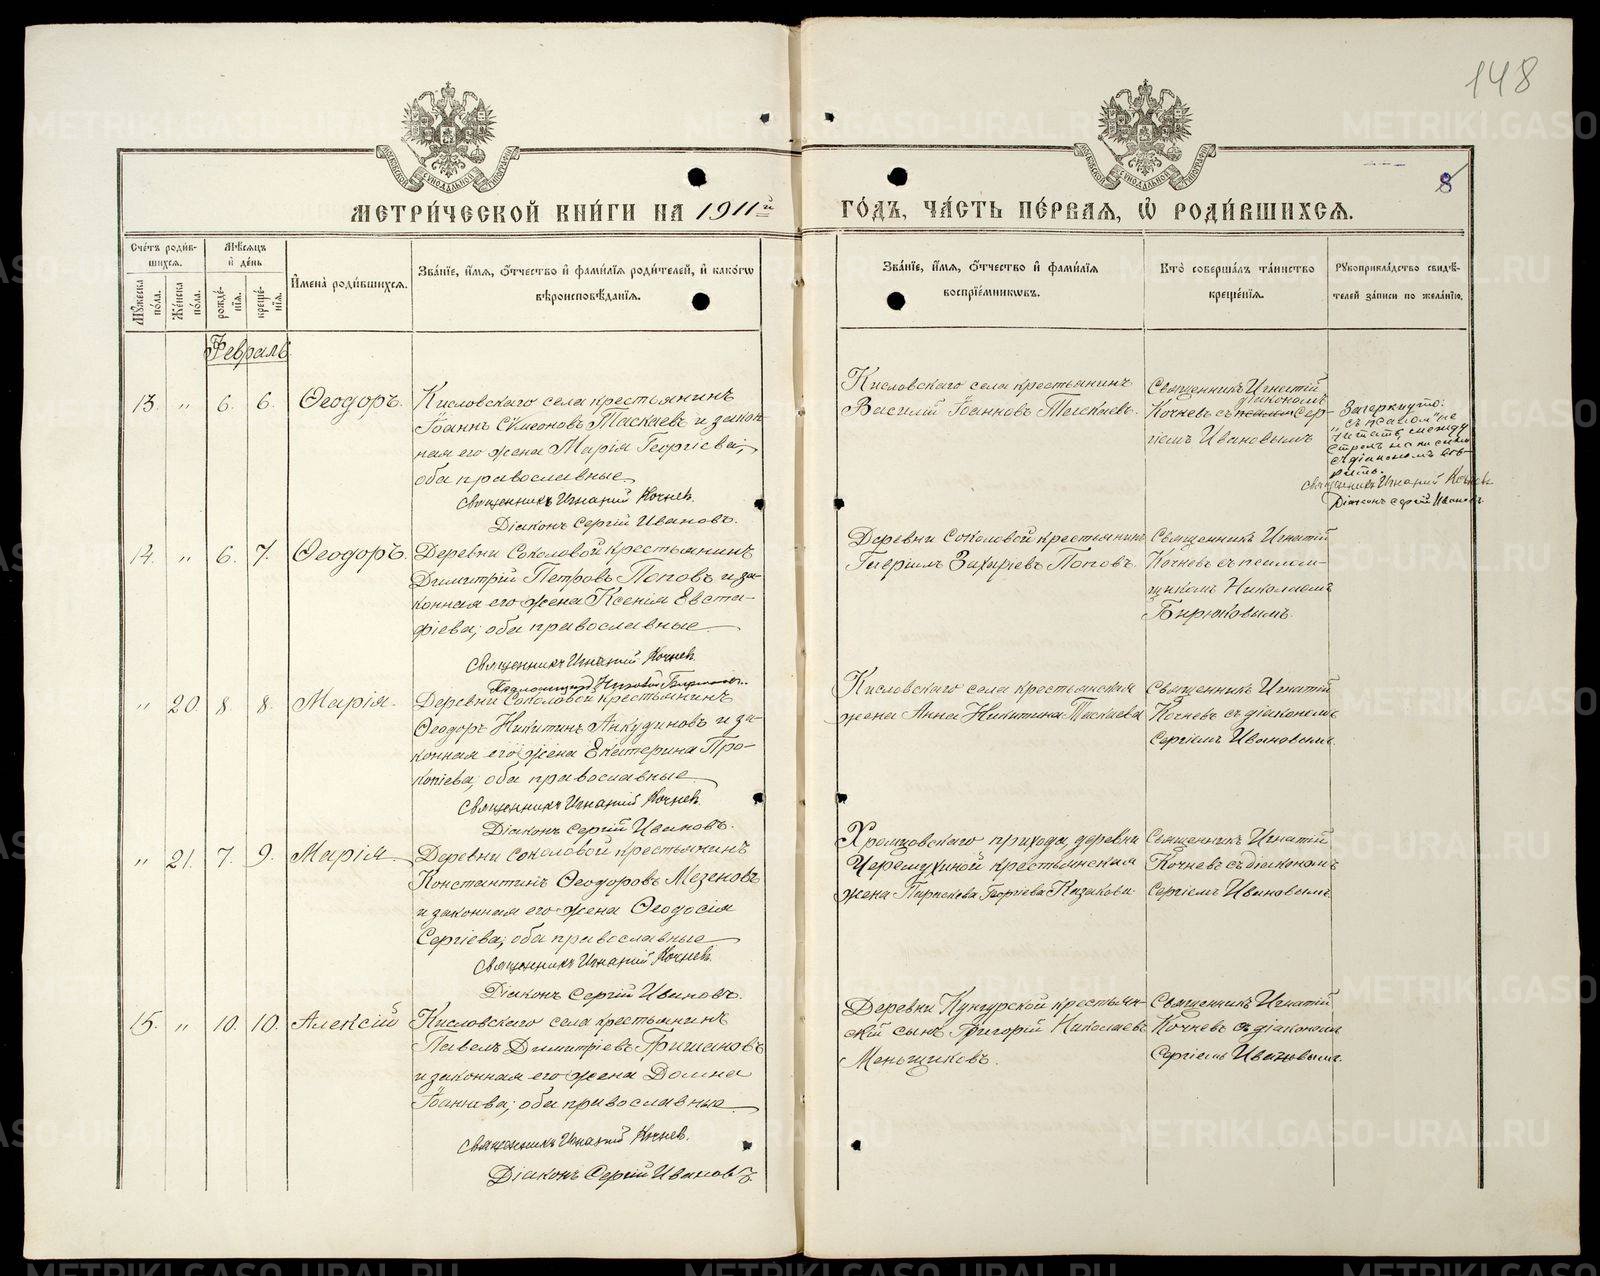 148
8
МЕТРИ́ЧЕСКОЙ КНИ́ГИ НА 1911й
ГО́ДЪ, ЧА́СТЬ ПЕ́РВАЯ, Ѽ РОДИ́ВШИХСЯ.
Сче́тъ роди́в-
шихся.
Мѣ́сяцъ
и҆ де́нь
Му́жеска
по́ла.
Же́нска
по́ла.
рожде́-
нїя.
креще́-
нїя.
И҆мена̀ роди́вшихся.
Зва́нїе, и҆́мя, ѻ҆́тчество и҆ фами́лїя роди́телей, и҆ како́гѡ
вѣроисповѣ́данїя.
Зва́нїе, и҆́мя, ѻ҆́тчество и҆ фами́лїя
воспрїе́мникѡвъ.
Кто̀ соверша́лъ та́инство
креще́нїя.
Рукоприкла́дство свидѣ́-
телей за́писи по жела́нїю.
Февраль
13. " 6. 6. Ѳеодоръ.
Кисловскаго села крестьянинъ
Іоаннъ Симеоновъ Таскаевъ и закон
ная его жена Марія Георгіева;
оба православные
Священникъ Игнатій Кочнев.
Діаконъ Сергій Ивановъ.
Кисловскаго села крестьянинъ
Василій Іоанновъ Таскаевъ.
Священникъ Игнатій
діакономъ
Кочневъ съ псалом Сер-
гіемъ Ивановымъ
Зачеркнуто:
"съ псалом" не
читать, между
строкъ написан
съ діакономъ вѣ-
рить.
Священникъ Игнатій Кочнев
Діаконъ Сергій Ивановъ.
14. " 6. 7. Ѳеодоръ.
Деревни Соколовой крестьянинъ
Димитрій Петровъ Поповъ и за-
конная его жена Ксенія Евста-
фіева; оба православные
Священникъ Игнатій Кочнев.
Псаломщикъ Николай Бирюковъ.
Деревни Соколовой крестьянинъ
Захаріевъ Поповъ.
Священникъ Игнатій
Кочневъ съ псалом-
щикомъ Николаемъ
Бирюковымъ.
" 20. 8. 8. Марія.
Деревни Соколовой крестьянинъ
Ѳеодоръ Никитинъ Анкудиновъ и за-
конная его жена Екатерина Про-
копіева; оба православные
Священникъ Игнатій Кочнев.
Діаконъ Сергій Ивановъ.
Кисловскаго села крестьянская
жена Анна Никитина Таскаева
Священникъ Игнатій
Кочневъ съ діакономъ
Сергіемъ Ивановымъ.
" 21. 7. 9. Марія
Деревни Соколовой крестьянинъ
Константинъ Ѳеодоровъ Мезеновъ
и законная его жена Ѳеодосія
Сергіева; оба православные
Священникъ Игнатій Кочнев.
Діаконъ Сергій Ивановъ.
Хромцовскаго прихода, деревни
Черемухиной крестьянская
жена Георгіева Казакова
Священникъ Игнатій
Кочневъ съ діакономъ
Сергіемъ Ивановымъ
15. " 10. 10. Алексій
Кисловскаго села крестьянинъ
Павелъ Димитріевъ Гришановъ
и законная его жена Домна
Іоаннева; оба православные
Священникъ Игнатій Кочнев.
Діаконъ Сергій Ивановъ
Деревни Кунгурской крестьян-
скій сынъ Григорій Николаевъ
Меньщиковъ.
Священникъ Игнатій
Кочневъ съ діакономъ
Сергіемъ Ивановымъ.
METRIKI.GASO-URAL.RU